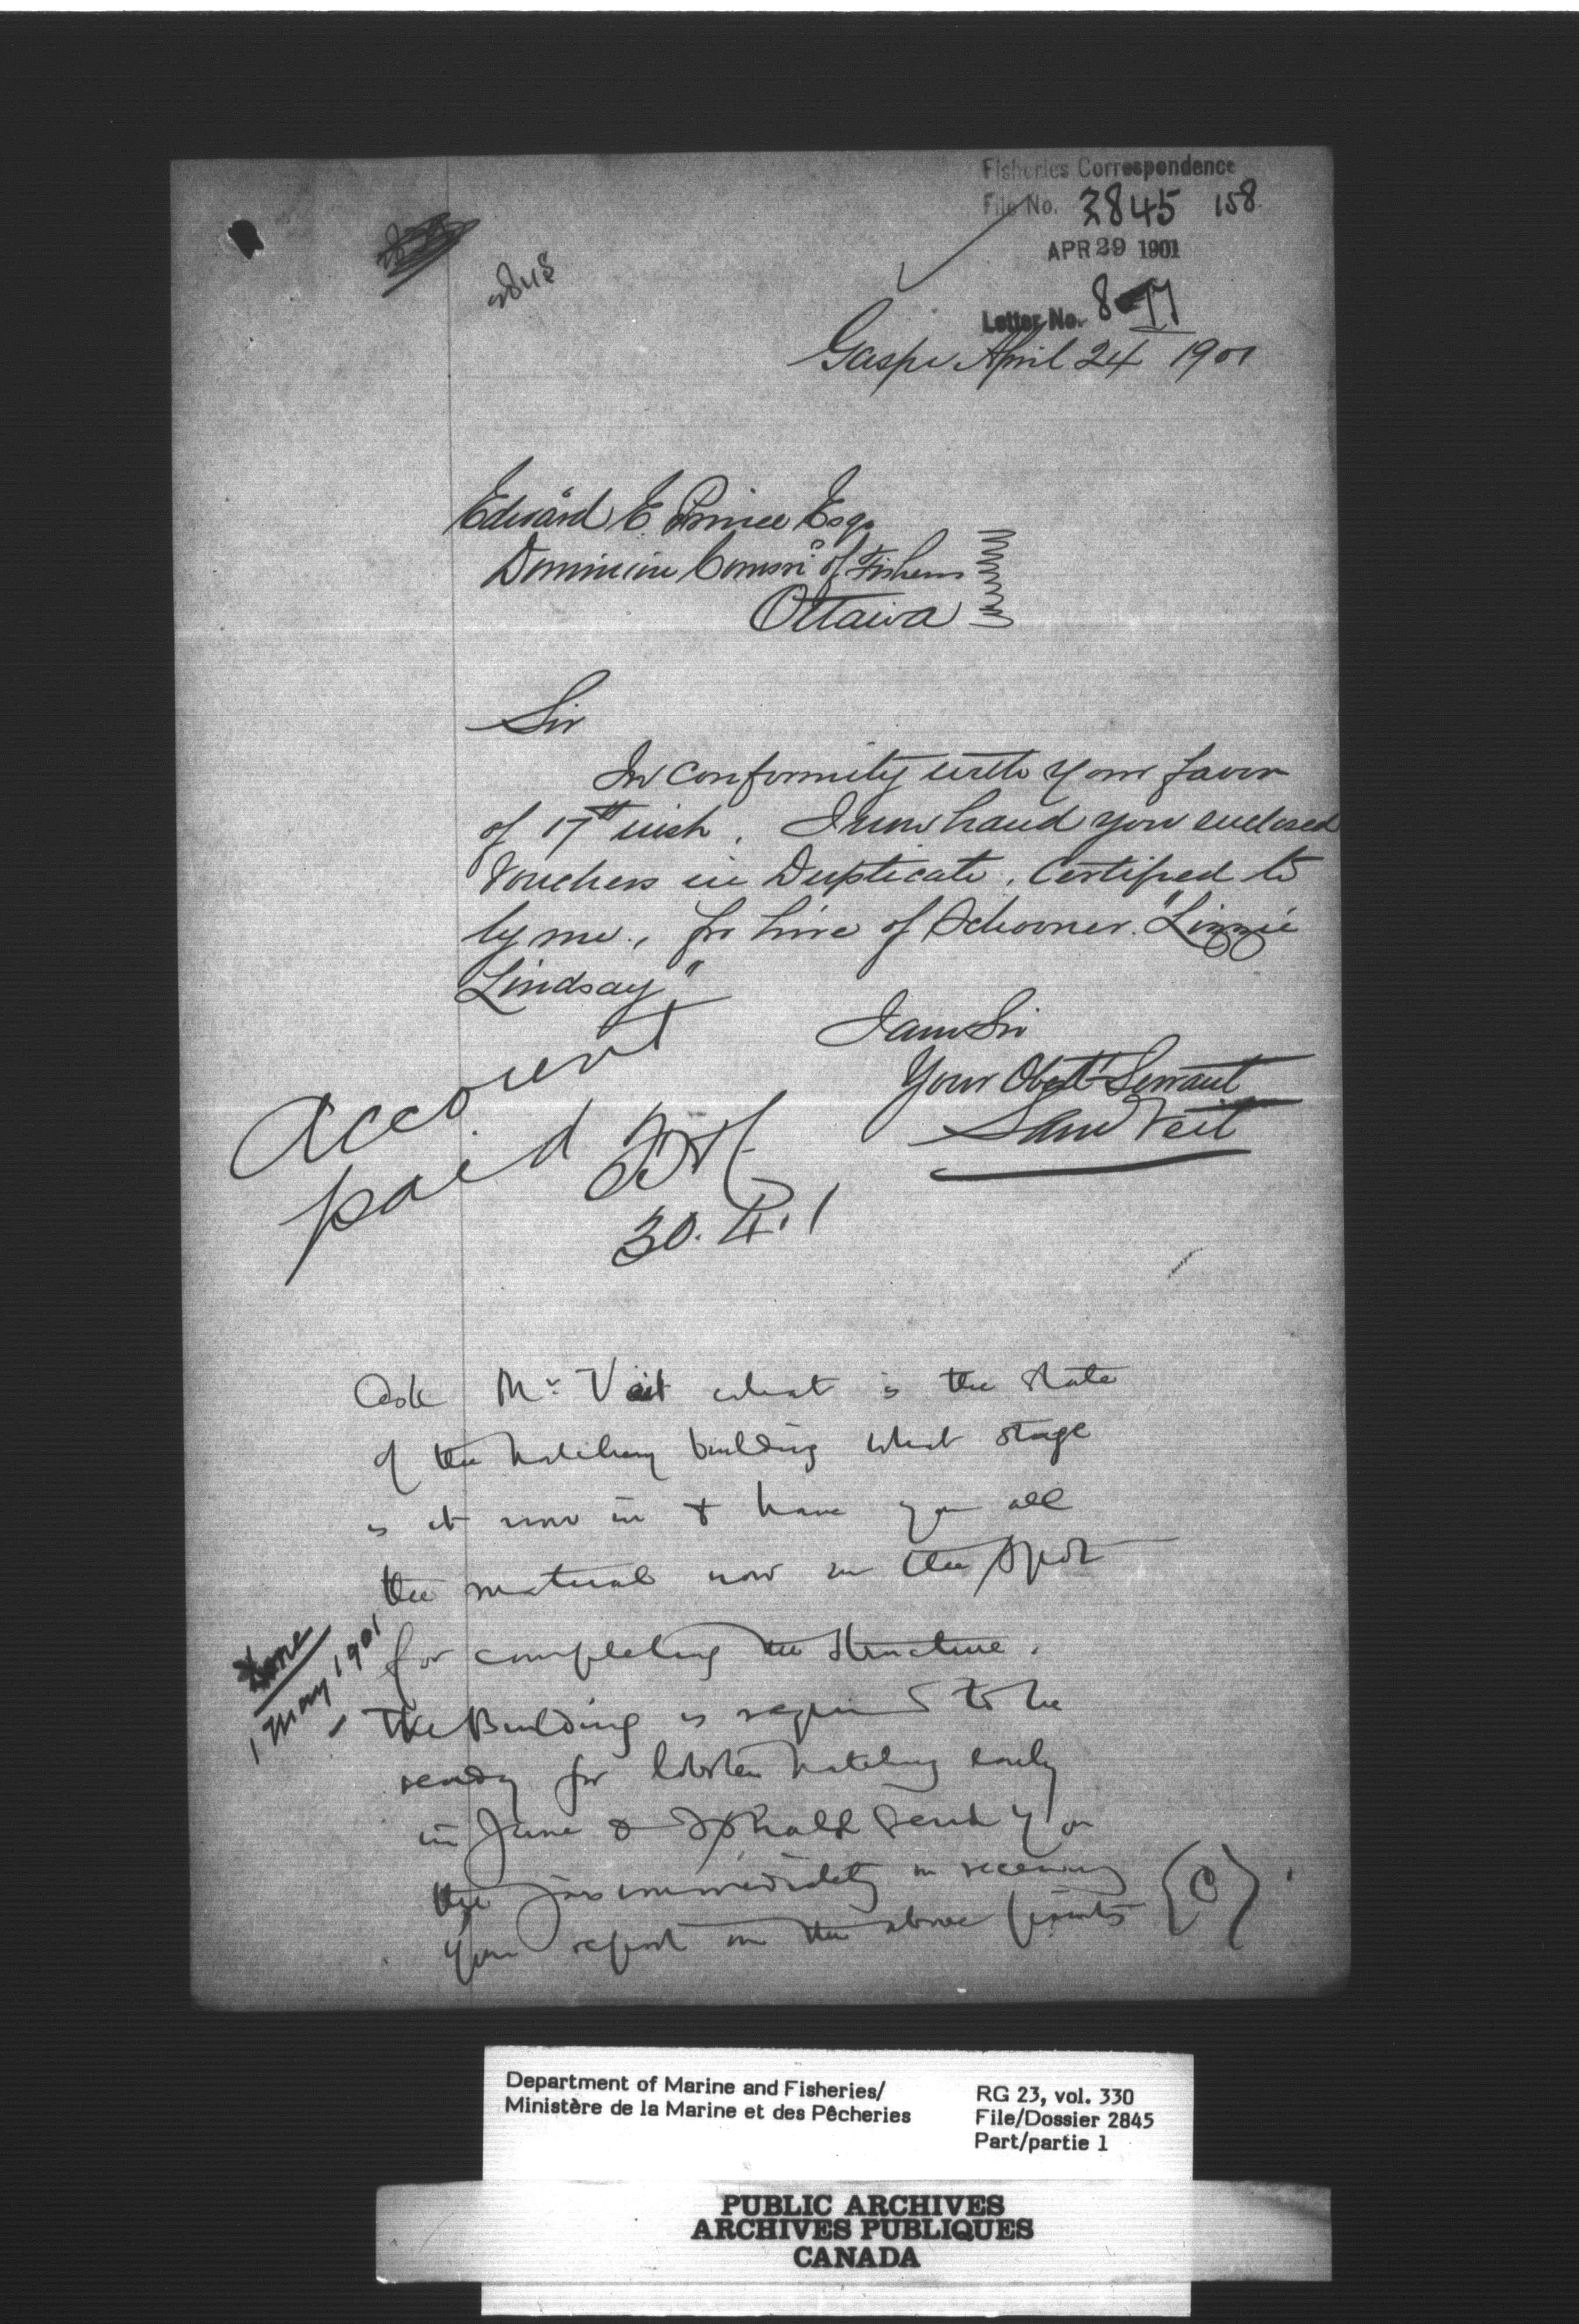 Fisheries Correspondence
File No. 2845 158
APR 29 1901
2845
Letter No.
Gaspe April 24 1901
Edward E. Prince Esq.
Dominion Comsnr of Fisheries
Ottawa
Sir
In conformity with your favor
of 17th inst. I now hand you enclosed
Vouchers in Duplicate, Certified to
by me, for hire of Schooner "Lizzie
Lindsay"
I am Sir
Your Obedt Servant
Sam Veit
Account
paid
30. 4. 1
Ask Mr Veit what is the state
of the hatchery building what stage
is it now in & have you all
the material now on the spot
for completing the structure.
Done
1 May 1901
The Building is required to be
ready for lobster hatching early
in June & I shall send you
the jars immediately on receiving
your report on the above points {C}.
Department of Marine and Fisheries/
Ministère de la Marine et des Pêcheries
RG 23, vol. 330
File/Dossier 2845
Part/partie 1
PUBLIC ARCHIVES
ARCHIVES PUBLIQUES
CANADA